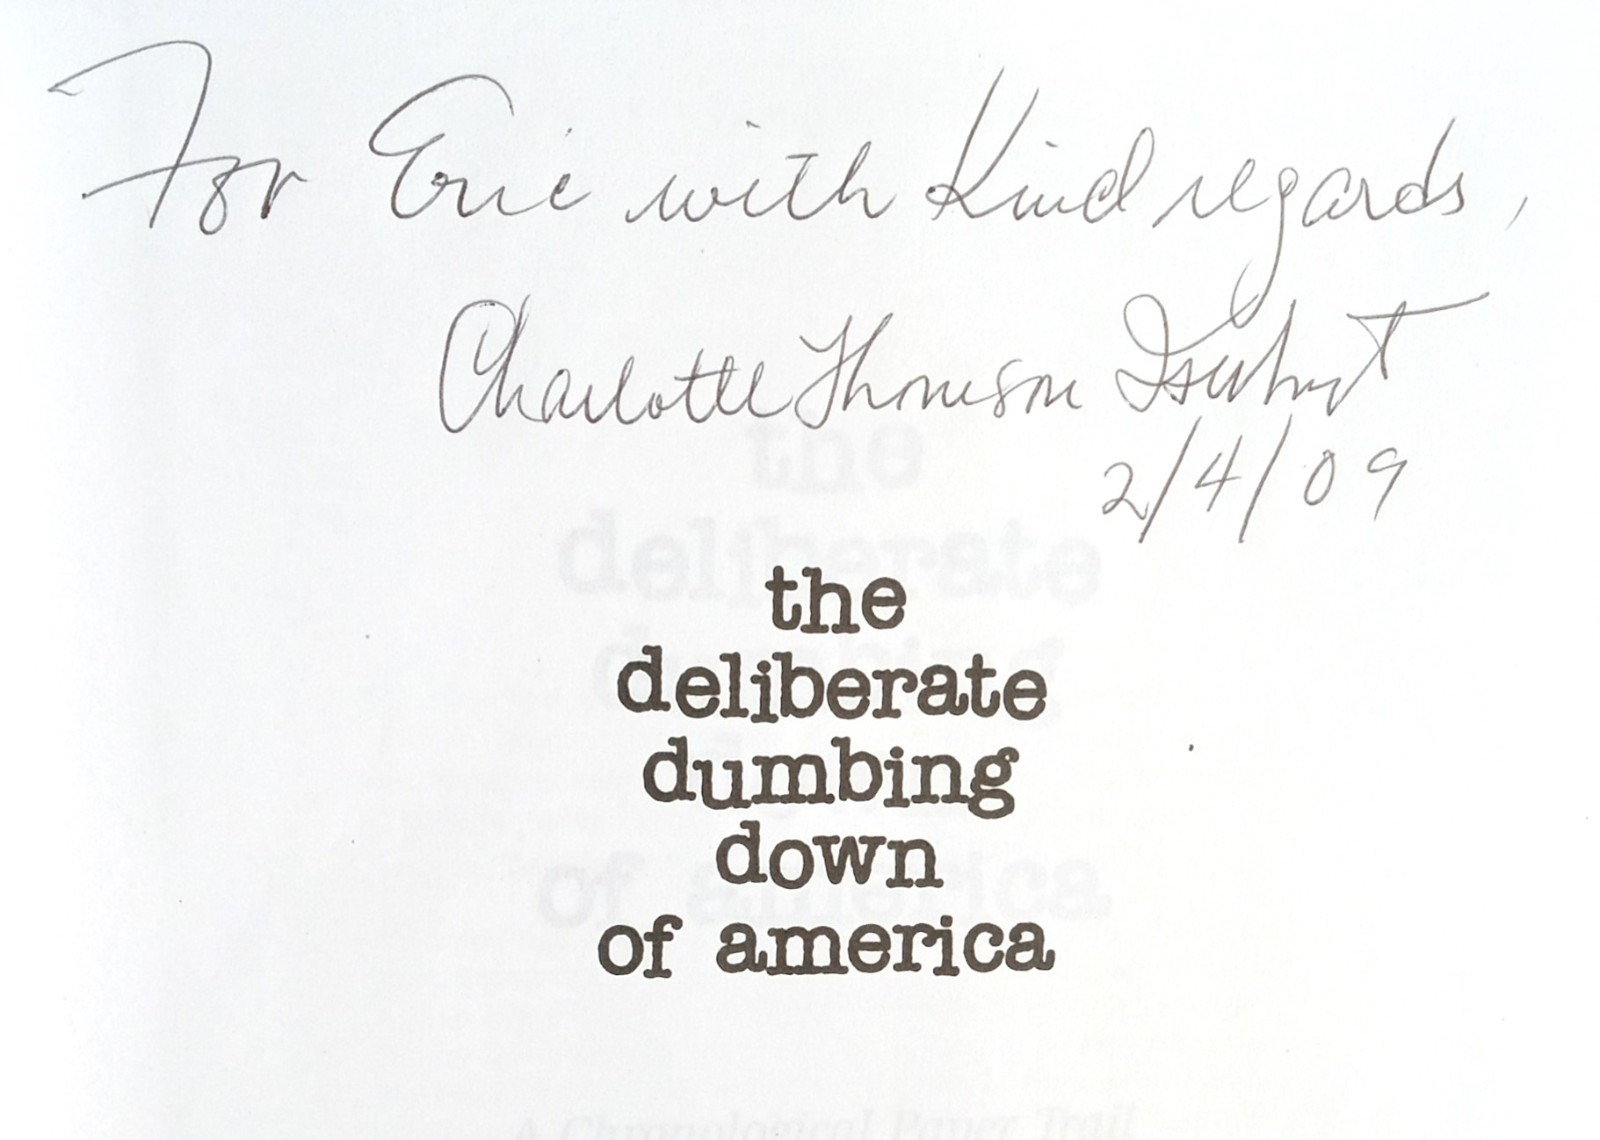 For Eric with Kind regards,
Charlotte Thomson Iserbyt
2/4/09
the
deliberate
dumbing
down
of america
A Chronological Paper Trail